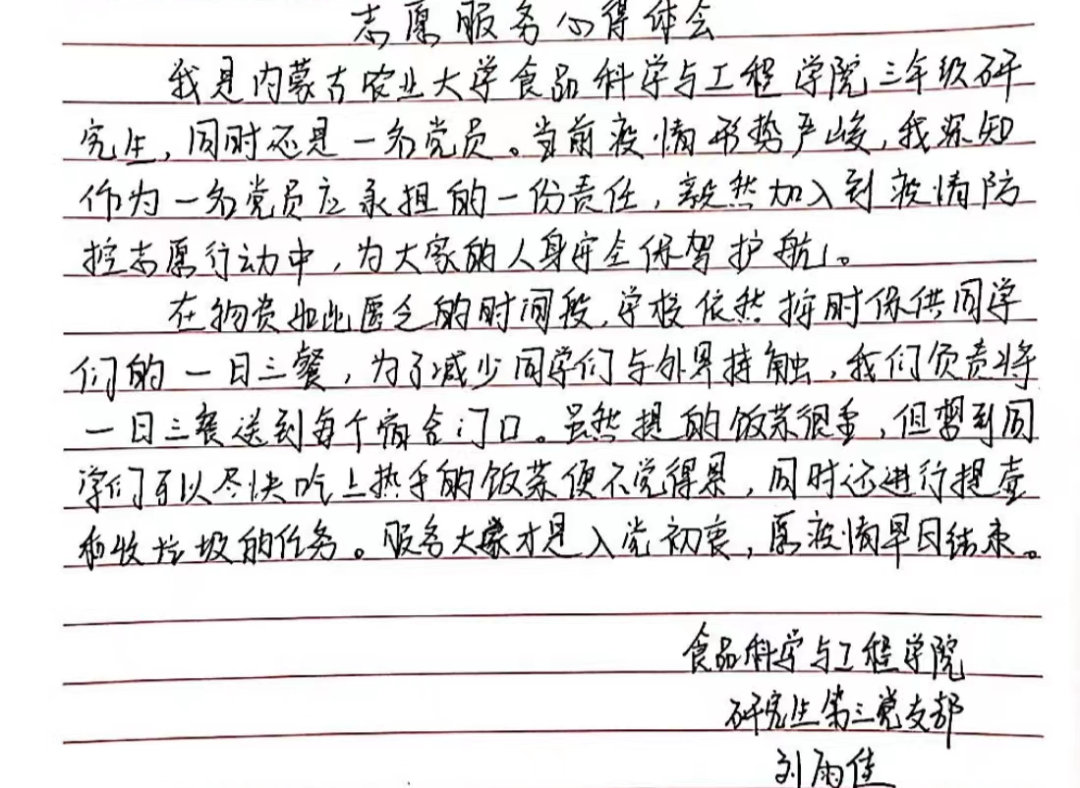 志愿服务心得体会
我是内蒙古农业大学食品科学与工程学院三年级研
究生，同时还是一名党员。当前疫情形势严峻，我深知
作为一名党员应承担的一份责任，毅然加入到疫情防
控志愿行动中，为大家的人身安全保驾护航。
在物资如此匮乏的时间段，学校依然按时保供同学
们的一日三餐，为了减少同学们与外界接触，我们负责将
一日三餐送到每个宿舍门口。虽然提的饭菜很重，但想到同
学们可以尽快吃上热乎的饭菜便不觉得累，同时还进行提壶
和收垃圾的任务。服务大家才是入党初衷，愿疫情早日结束。
食品科学与工程学院
研究生第三党支部
刘雨佳